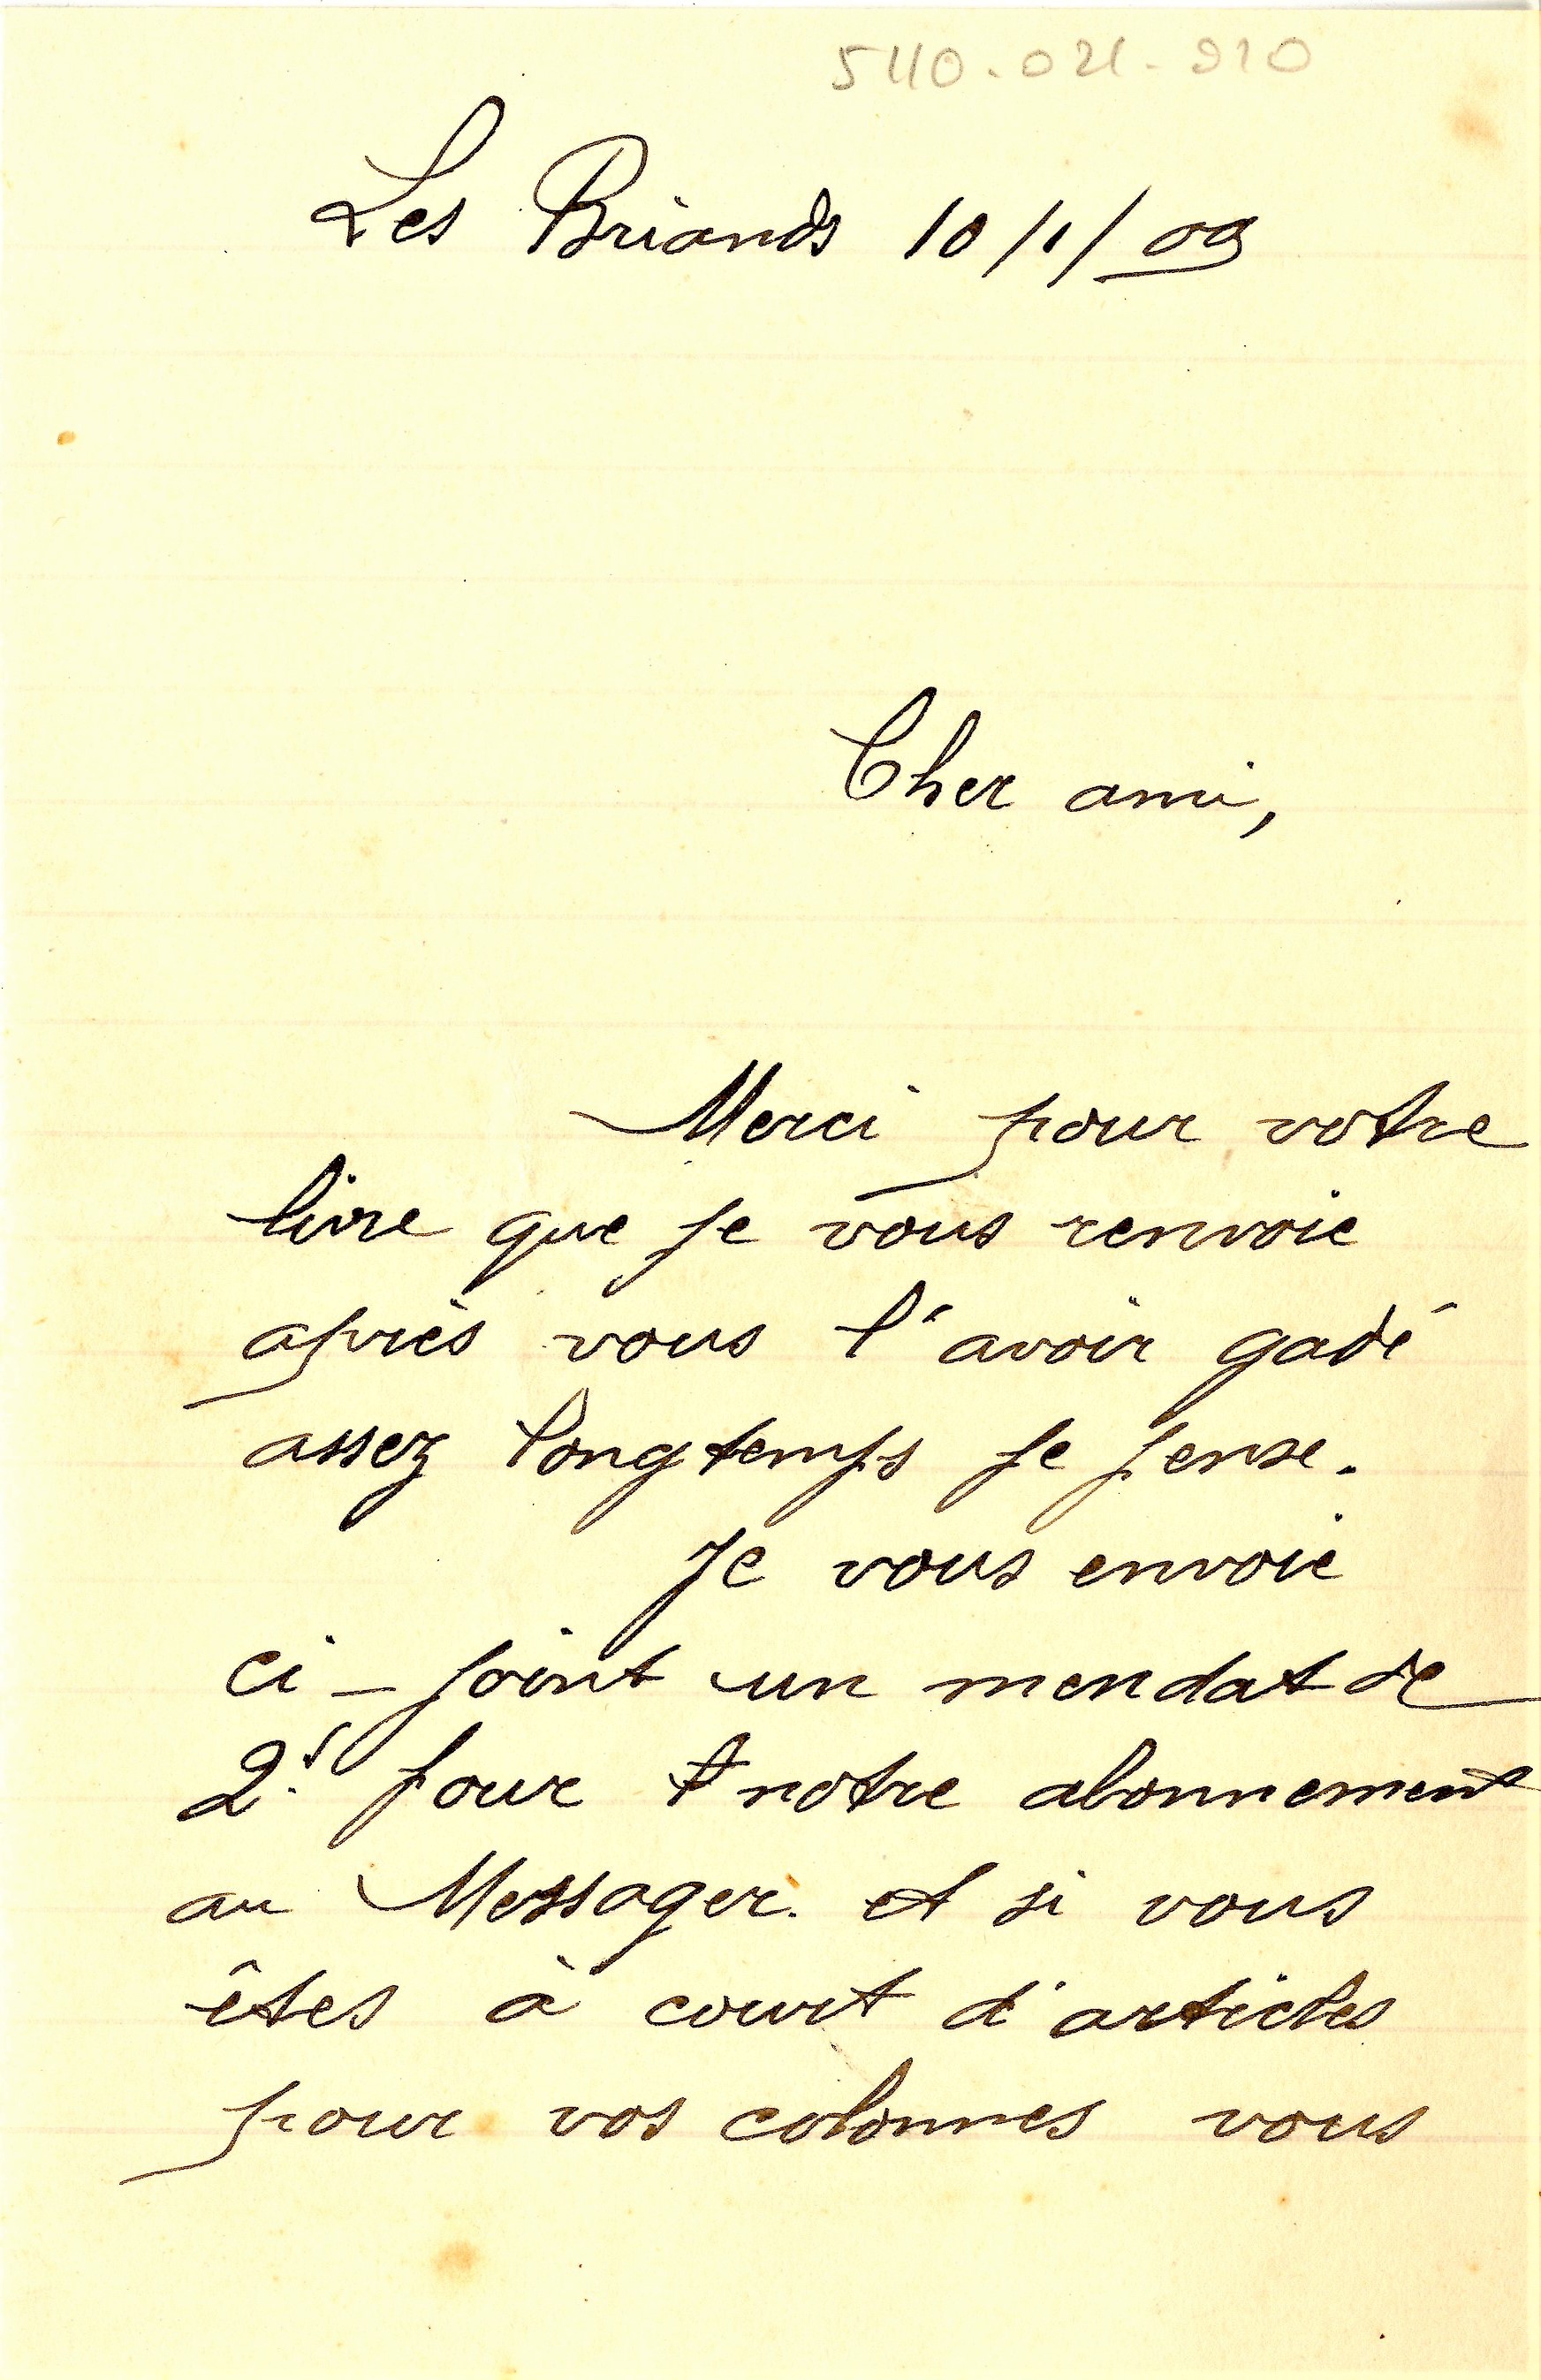 5110.021-910
Les Briands 10/1/09
Cher ami,
Merci pour votre
livre que je vous renvoie
après vous l'avoir gadé
assez longtemps je pense.
Je vous envoie
ci-joint un mendat de
2.f pour notre abonnement
au Messager. et si vous
êtes à court d'articles
pour vos colonnes vous